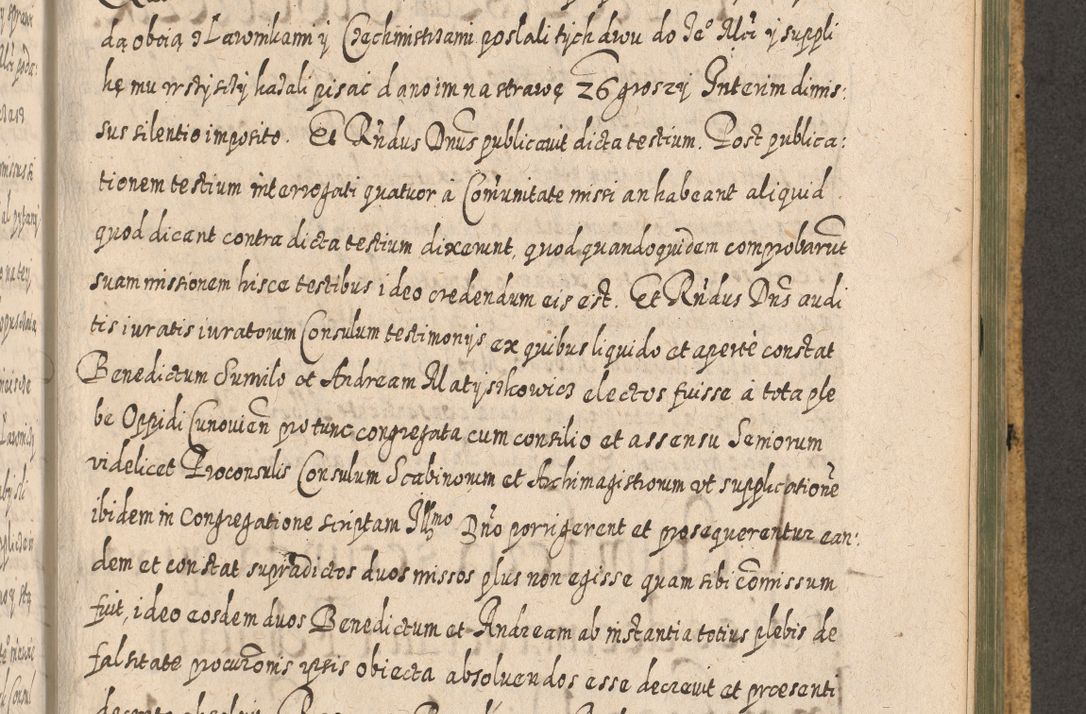 dą oboią z Lawnikami y Czechmistrzami posłali tych dwu do Je° Mci y suppli
kę mu wszyscy kazali pisac dano im na strawę Z6 groszy Interim dimis:
sus silentio imposito. Et Rndus Dnus publicauit dicta testium. Post publica:
tionem testium interrogati quatuor à Comunitate missi an habeant aliquid
quod dicant contra dicta testium dixerunt, quod quandoquidem comprobarunt
suam missionem hisce testibus ideo credendum eis est. Et Rndus Dns audi
tis iuratis iuratorum Consulum testimonijs ex quibus liquido et aperte constat
Benedictum Sumilo et Andream Matyszkowicz electos fuisse à tota ple
be Oppidi Cunouien pro tunc congregata cum consilio et assensu Seniorum
videlicet Proconsulis Consulum Scabinorum et Archimagistrorum vt supplicatione
ibidem in Congregatione scriptam Illmo Dno porrigerent et prosequerentur ean:
dem et constat supradictos duos missos plus non egisse quam sibi comissum
fuit, ideo eosdem duos Benedictum et Andream ab instantia totius plebis de
falsitate procurationis ipsis obiecta absoluendos esse decreuit et praesenti